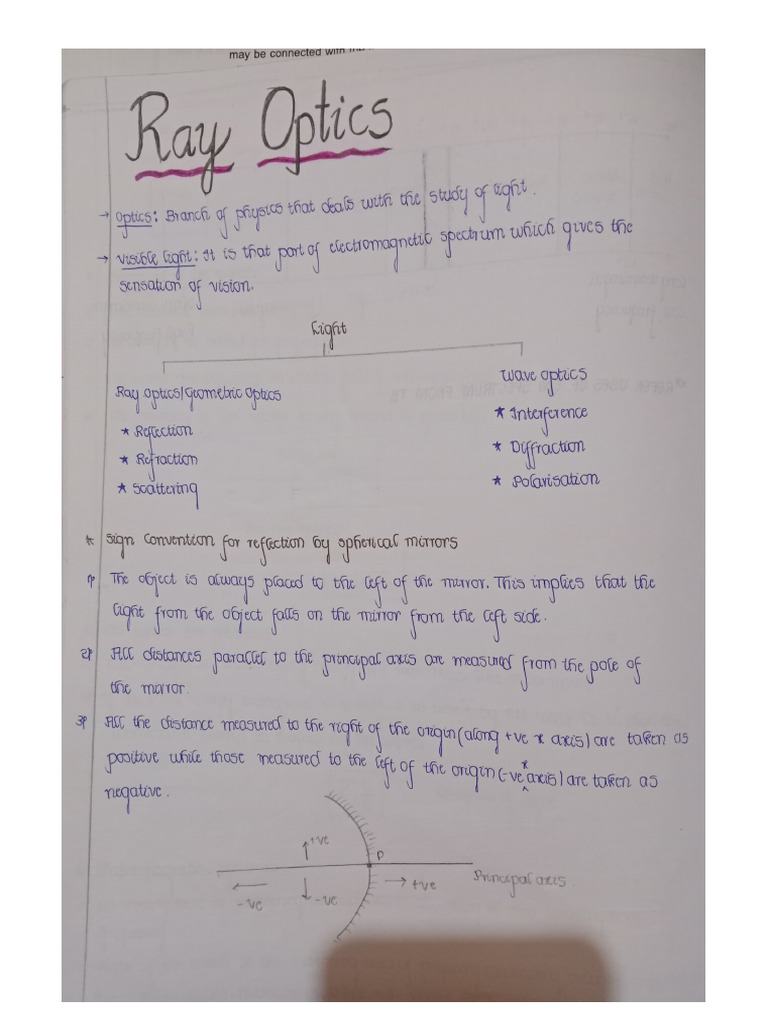 may be connected with
Ray Optics
→ Optics: Branch of physics that deals with the study of light.
→ Visible light: It is that part of electromagnetic spectrum which gives the
sensation of vision.
Light
Ray optics/Geometric optics
★ Reflection
★ Refraction
★ Scattering
Wave optics
★ Interference
★ Diffraction
★ Polarisation
* Sign convention for reflection by spherical mirrors
1) The object is always placed to the left of the mirror. This implies that the
light from the object falls on the mirror from the left side.
2) All distances parallel to the principal axis are measured from the pole of
the mirror.
3) All the distance measured to the right of the origin (along +ve x axis) are taken as
positive while those measured to the left of the origin (-ve x axis) are taken as
negative.
+ve
P
→ +ve
Principal axis.
-ve
-ve